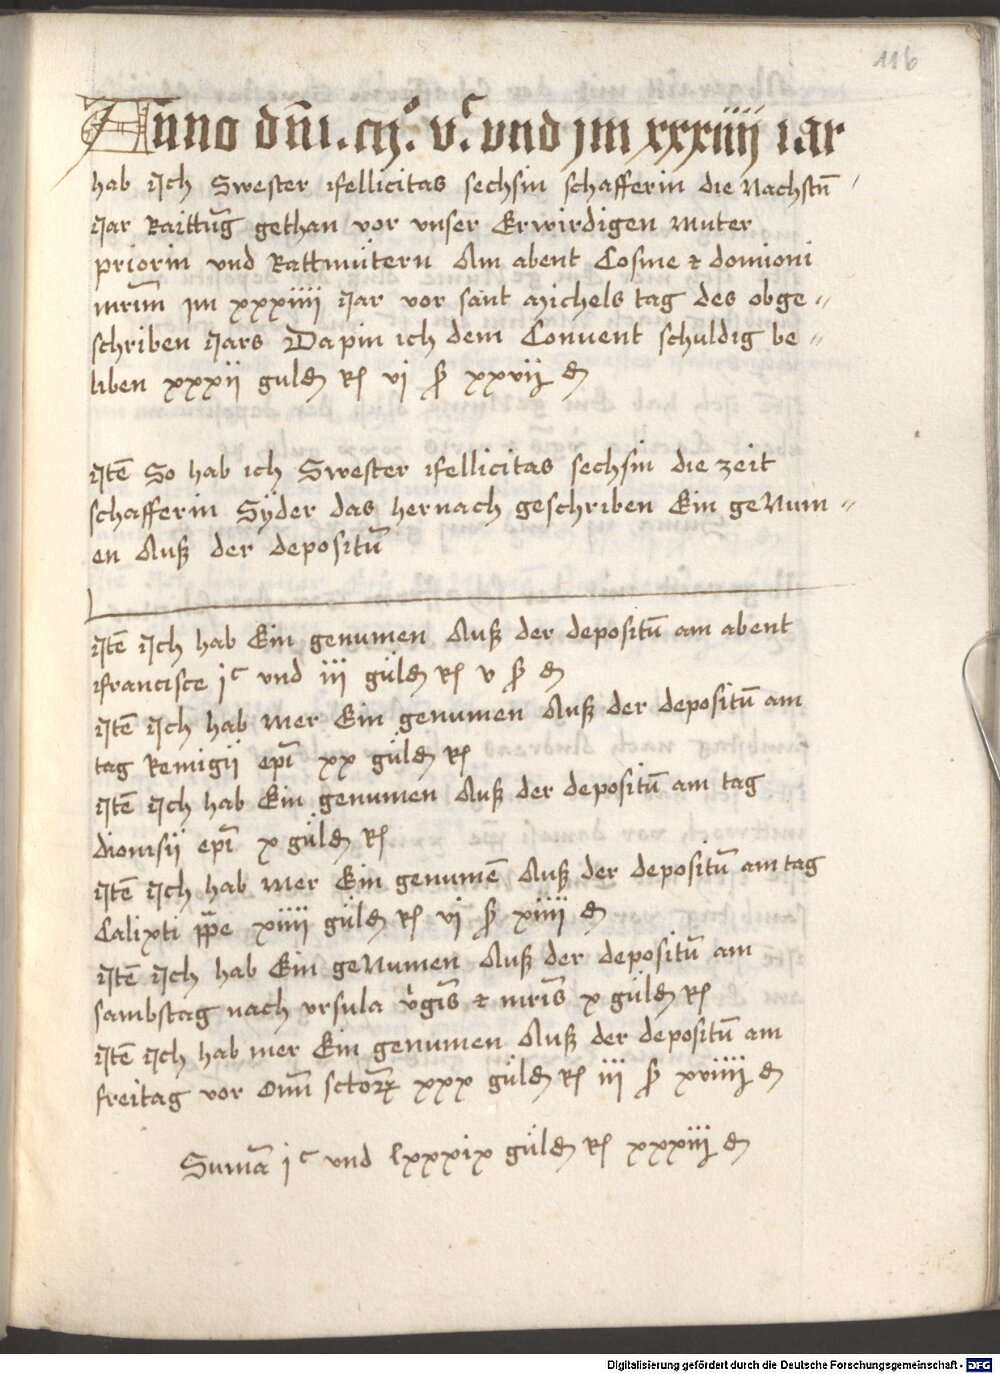 116
Anno dn̄i. cıↄ. vͨ. vnd jm xxxiiij Jar
hab Jch Swester ffellicitas sechsin schafferin die Nachstn̄
Jar Raittūg gethan vor vnser Erwirdigen muter
priorin vnd Rattmütern Am abent Cosme ⁊ domioni
mrim̄ jm xxxiiij Jar vor sant Michels tag des obge„
schriben Jars Da pin ich dem Conuent schuldig be„
liben xxxij guldn̄ Rͥ vj ẞ xxvij ₰
Jtē So hab ich Swester ffellicitas sechsin die zeit
schafferin Syder das hernach geschriben Ein geNum„
en Auß der depositū
Jtē Jch hab Ein genumen Auß der depositū am abent
ffrancisce jͨ vnd iij güldn̄ Rͥ v ẞ ₰
Jtē Jch hab mer Ein genumen Auß der depositū am
tag Remigij epī xx güldn̄ Rͥ
Jtē Jch hab Ein genumen Auß der depositū am tag
dionisij epī x güldn̄ Rͥ
Jtē Jch hab mer Ein genumē Auß der depositū am tag
Calixti p̄pe xiiij güldn̄ Rͥ vj ẞ xiiij ₰
Jtē Jch hab Ein geNumen Auß der depositū am
sambstag nach vrsula v̓gīs ⁊ mrīs x güldn̄ Rͥ
Jtē Jch hab mer Ein genumen Auß der depositū am
freitag vor Om̄ sctorꝝ xxx güldn̄ Rͥ iij ẞ xviiij ₰
Sum̄a jͨ vnd lxxxix güldn̄ Rͥ xxxiij ₰
Digitalisierung gefördert durch die Deutsche Forschungsgemeinschaft - DFG